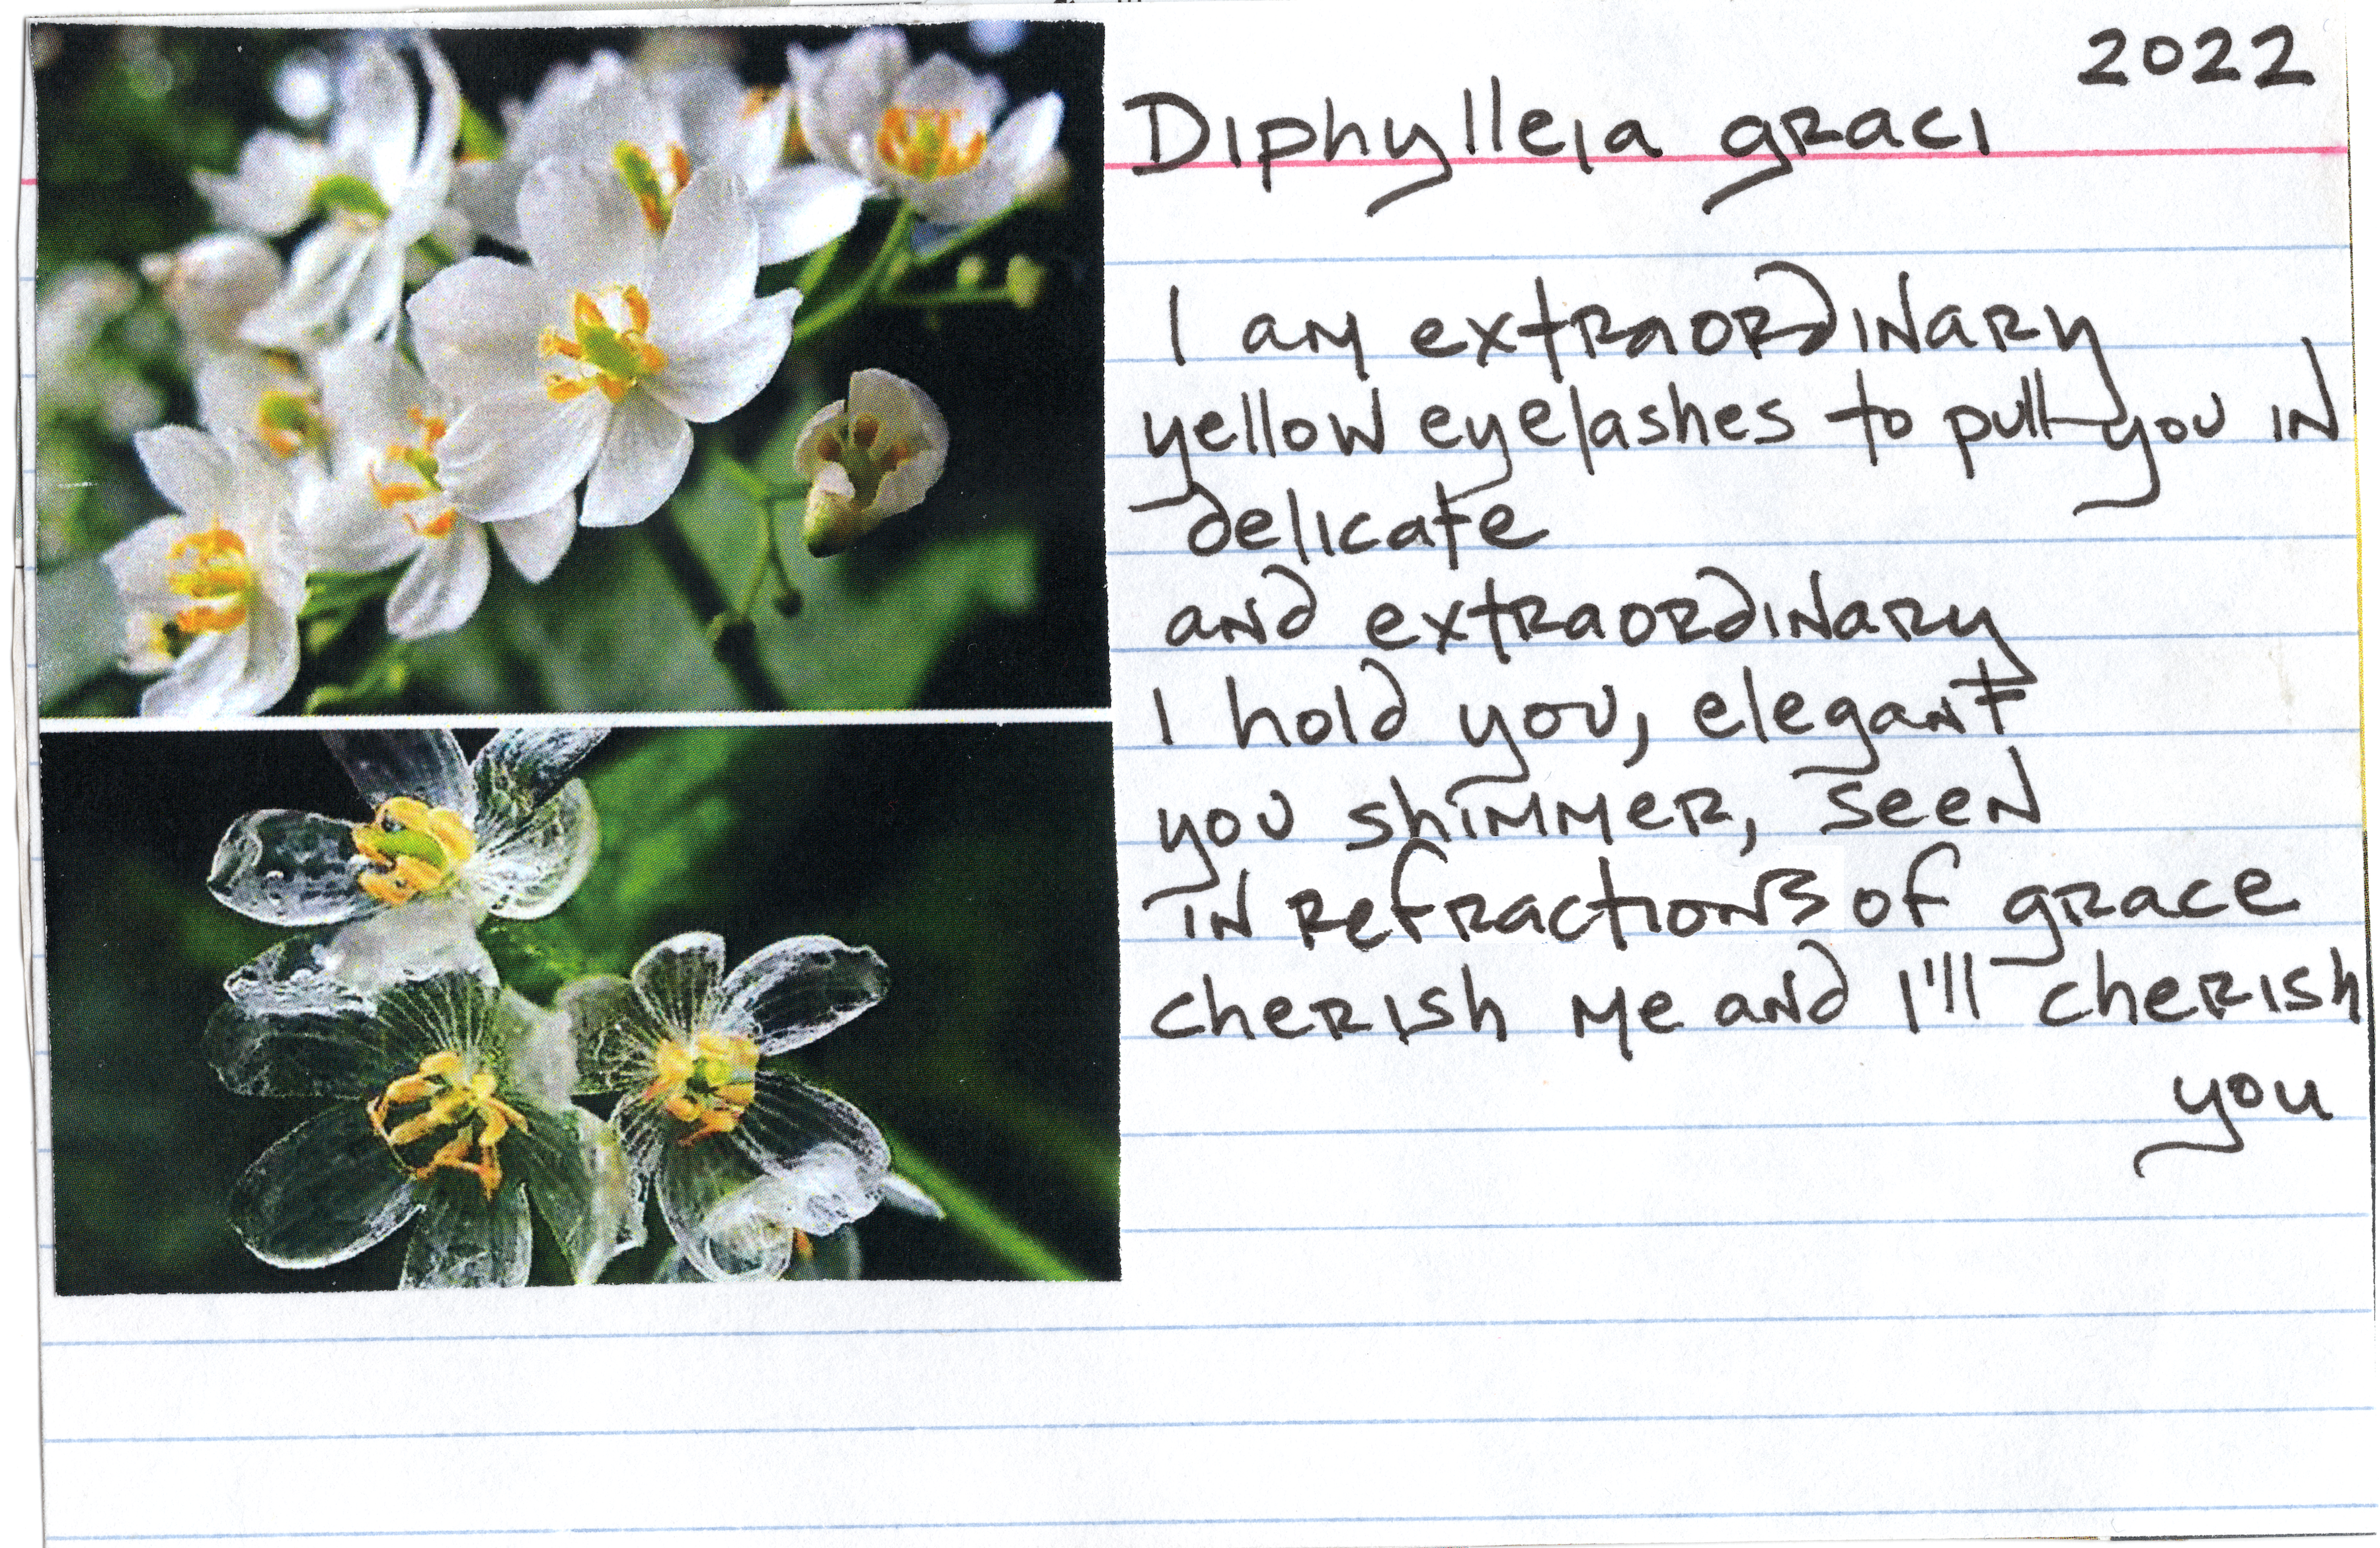 2022
Diphylleia graci
I am extraordinary
yellow eyelashes to pull you in
delicate
and extraordinary
I hold you, elegant
you shimmer, seen
in refractions of grace
cherish me and I'll cherish
you